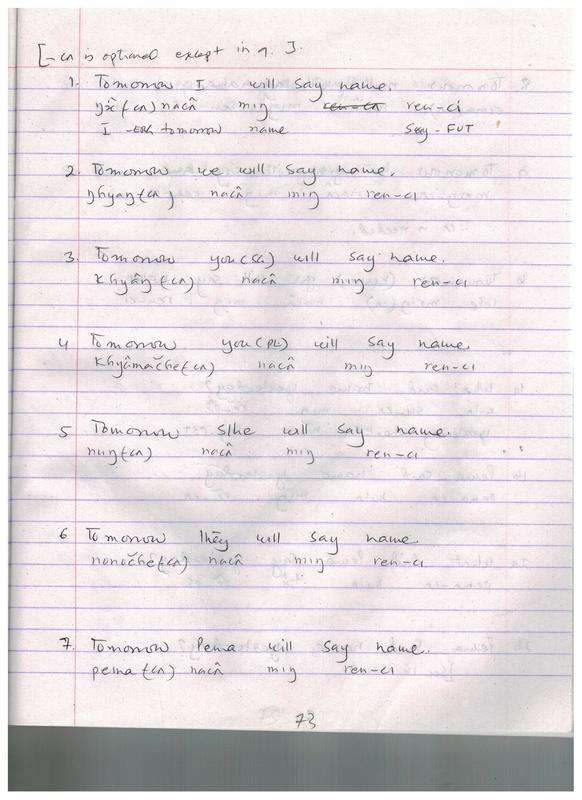 [-cn is optional except in 9. ].
1. Tomorrow I will say name.
ŋɤ̂(cn) nacn̂ miŋ ren-cn ren-ci
I -ERG tomorrow name Say - FUT
2. Tomorrow we will say name.
ŋhyaŋ(cn) nacn̂ miŋ ren-ci
3. Tomorrow you(SG) will say name.
Khyâŋ(cn) nacn̂ miŋ ren-ci
4 Tomorrow you(PL) will say name.
Khyâmače(cn) nacn̂ miŋ ren-ci
5 Tomorrow S/he will say name.
nuŋ(cn) nacn̂ miŋ ren-ci
6 Tomorrow they will say name.
nonočhe(cn) nacn̂ miŋ ren-ci
7. Tomorrow Pema will say name.
pema(cn) nacn̂ miŋ ren-ci
73